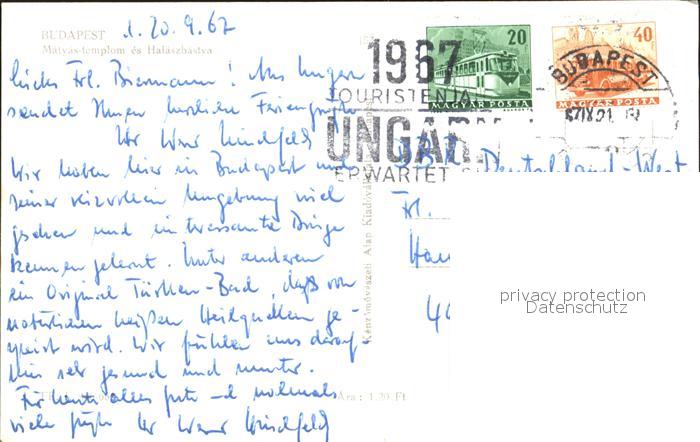 BUDAPEST
Mátyás-templom és Halászbástya
d. 20.9.67
Liebes Frl. Biermann! Aus Ungarn
sendet Ihnen herzlichen Feriengruß
Ihr
Wir haben hier in Budapest und
seiner reizvollen Umgebung viel
gesehen und interessante Dinge
kennen gelernt. Unter anderem
ein Original Türken-Bad, das von
natürlichen heißen Heilquellen ge-
speist wird. Wir fühlen uns darauf-
hin sehr gesund und munter.
Für heute alles gute und nochmals
viele Grüße Ihr
Képzőművészeti Alap Kiadóvállalata, Budapest
Ára: 1.20 Ft
1967
TOURISTENJA
UNGARN
ERWARTET
20
MAGYAR POSTA
40
MAGYAR POSTA
BUDAPEST
67 IX 21
Deutschland-West
Frl.
privacy protection
Datenschutz